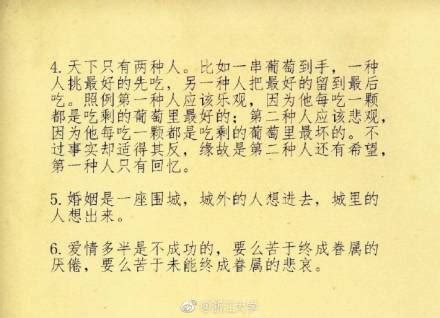 4.天下只有两种人。比如一串葡萄到手，一种
人挑最好的先吃，另一种人把最好的留到最后
吃。照例第一种人应该乐观，因为他每吃一颗
都是吃剩的葡萄里最好的；第二种人应该悲观，
因为他每吃一颗都是吃剩的葡萄里最坏的。不
过事实却适得其反，缘故是第二种人还有希望，
第一种人只有回忆。
5.婚姻是一座围城，城外的人想进去，城里的
人想出来。
6.爱情多半是不成功的，要么苦于终成眷属的
厌倦，要么苦于未能终成眷属的悲哀。
@浙江大学